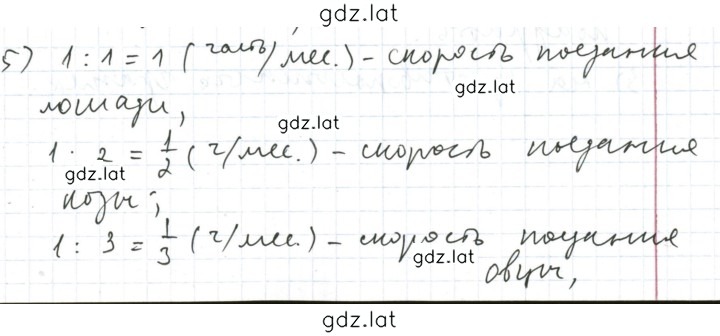 gdz.lat
5) 1 : 1 = 1 (часть/мес.) - скорость поедания
gdz.lat
лошади,
gdz.lat
1 · 2 = 1/2 (ч/мес.) - скорость поедания
gdz.lat
козы;
1 : 3 = 1/3 (ч/мес.) - скорость поедания
gdz.lat
овцы,
gdz.lat